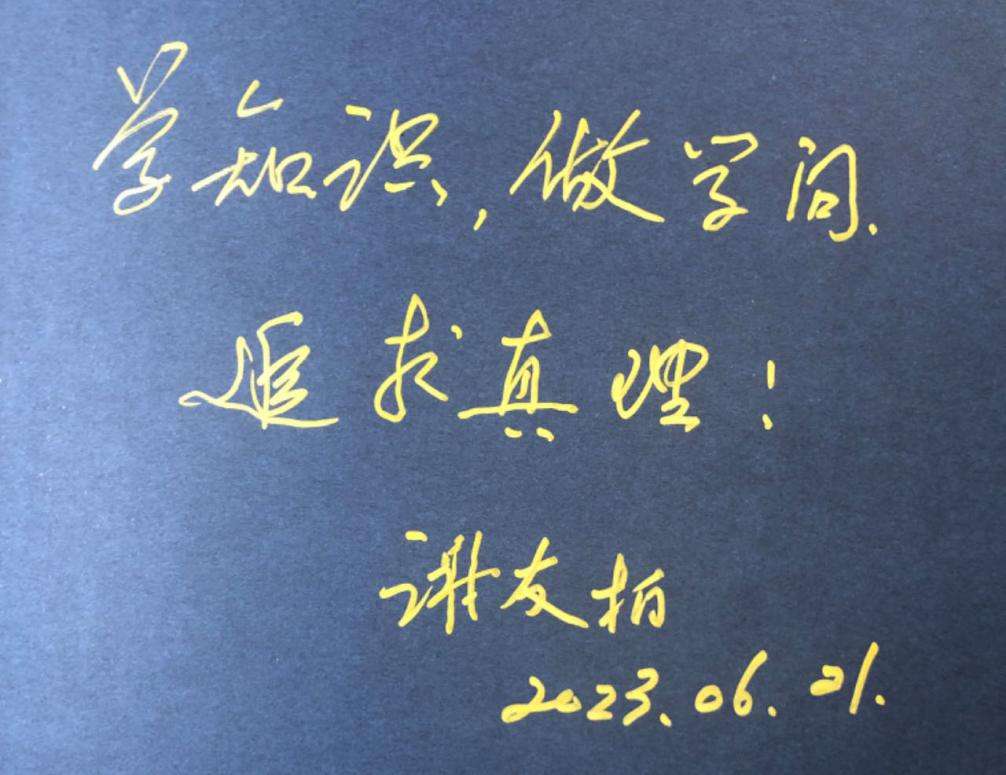 学知识,做学问.
追求真理!
谢友柏
2023.06.01.